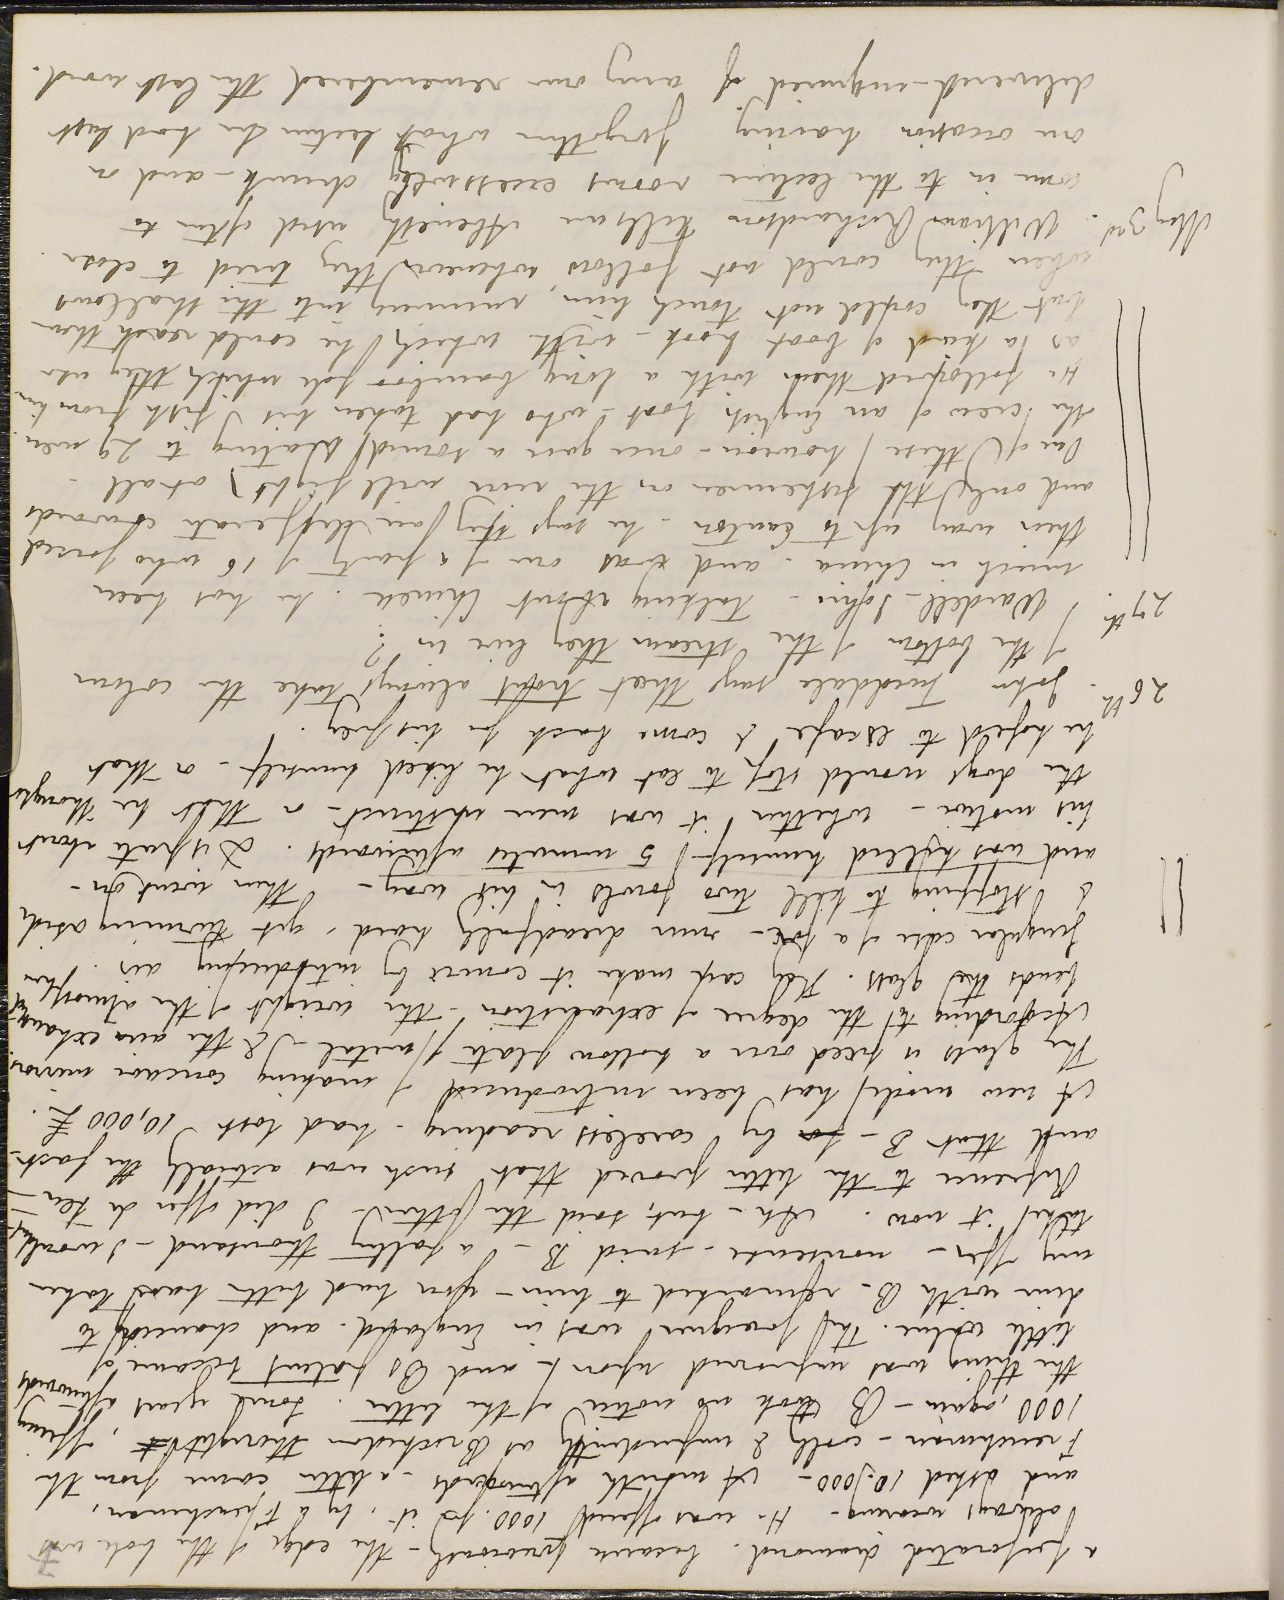 7
a perforated diamond. because previously - the edge of the hole was
always wearing - He was offered 1000. for it, by a Frenchman,
and asked 10.000 - A month afterwards - a letter came from the
Frenchman - coolly & impudently as Brockedon thought it, offering
1000, again - B took no notice of the letter. Some years afterwards
the thing was improved upon - and Bs patent became of
little value. The foreigner was in England. and chancing to
dine with B - remarked to him - you had better have taken
my offer - nonsense - said B - a paltry thousand - I wouldnt
take it now. Ah - but, said the other - I did offer de ten -
Reference to the letter proved that such was actually the fact -
and that B - for by careless reading - had lost 10,000 £.
A new mode has been introduced of making concave mirrors.
The glass is fixed over a hollow plate of metal - & the air exhausted
According to the degree of exhaustion - the weight of the atmosphere
bends the glass. They can make it convex by introducing air.
Singular case of a fox - run dreadfully hard - yet turning aside
& stopping to kill two fowls in his way - then went on -
and was killed himself 5 minutes afterwards. Dispute about
his motive - whether it was mere instinct - or that he thought
the dogs would stop to eat what he liked himself - or that
he hoped to escape & come back for his prey.
26th. John Tweddale says that trout always take the colour
of the bottom of the stream they live in?
27th. Wardell - John - talking about Chinese. he has been
much in China. and was one of a party of 16 who forced
their way up to Canton - he says they are desperate cowards
and only the fishermen on the river will fight at all -
One of these however - once gave a sound beating to 29 men.
the crew of an English boat - who had taken his fish from him
He followed them with a long bamboo pole which they use
as a kind of boat hook - with which he could reach them
but they could not touch him, running into the shallows
when they could not follow whenever they tried to close.
May 3rd. William Richardson tells me Abenethy used often to
come in to the lecture rooms excessively drunk - and on
one occasion having forgotten what lecture he had last
delivered - inquired if any one remembered the last word.